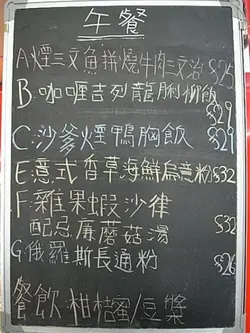 午餐
A.煙三文魚拼燒牛肉三文治 $25
B.咖喱吉列龍脷柳飯 $29
C.沙爹煙鴨胸飯 $29
E:意式香草海鮮烏意粉 $32
F:雜果蝦沙律
配忌廉蘑菇湯 $32
G.俄羅斯長通粉 $26
餐飲 柑桔蜜/豆漿